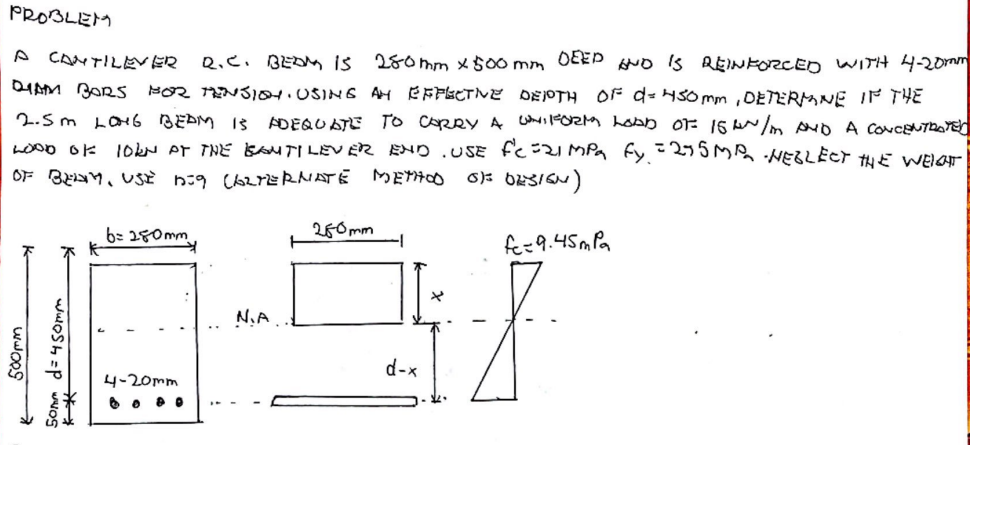 PROBLEM
A CANTILEVER R.C. BEAM IS 280mm x 500mm DEEP AND IS REINFORCED WITH 4-20mm
DIAM BARS FOR TENSION. USING AN EFFECTIVE DEPTH OF d=450mm, DETERMINE IF THE
2.5m LONG BEAM IS ADEQUATE TO CARRY A UNIFORM LOAD OF 15 kN/m AND A CONCENTRATED
LOAD OF 10kN AT THE CANTILEVER END. USE f'c=21 MPa fy=275MPa. NEGLECT THE WEIGHT
OF BEAM, USE n=9 (ALTERNATE METHOD OF DESIGN)
b=280mm
280mm
fc=9.45mPa
500mm
d=450mm
50mm
4-20mm
N.A
x
d-x